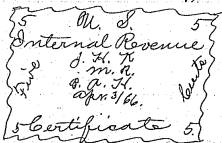 5 U. S. 5
Internal Revenue
J. H. K
M. R.
B. A. H.
Apr. 3/66.
Five Cents
5 Certificate 5.